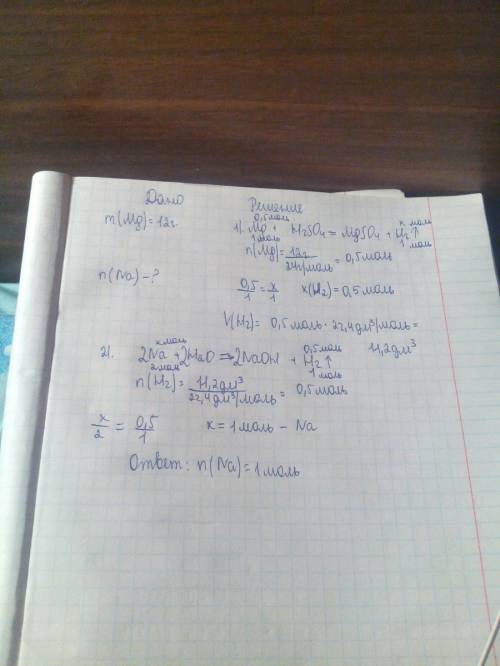 Дано
Решение
m(Mg)=12г
0,5моль
х моль
1). Mg + H₂SO₄ = MgSO₄ + H₂↑
1моль
1 моль
n(Mg)= 12г / 24г/моль = 0,5моль
n(Na)-?
0,5/1 = x/1 x(H₂)=0,5моль
V(H₂)= 0,5моль · 22,4дм³/моль =
11,2дм³
х моль
0,5моль
2). 2Na + 2H₂O ⇒ 2NaOH + H₂↑
2моль
1моль
n(H₂)= 11,2дм³ / 22,4дм³/моль = 0,5моль
x/2 = 0,5/1 x = 1моль - Na
Ответ: n(Na)=1моль